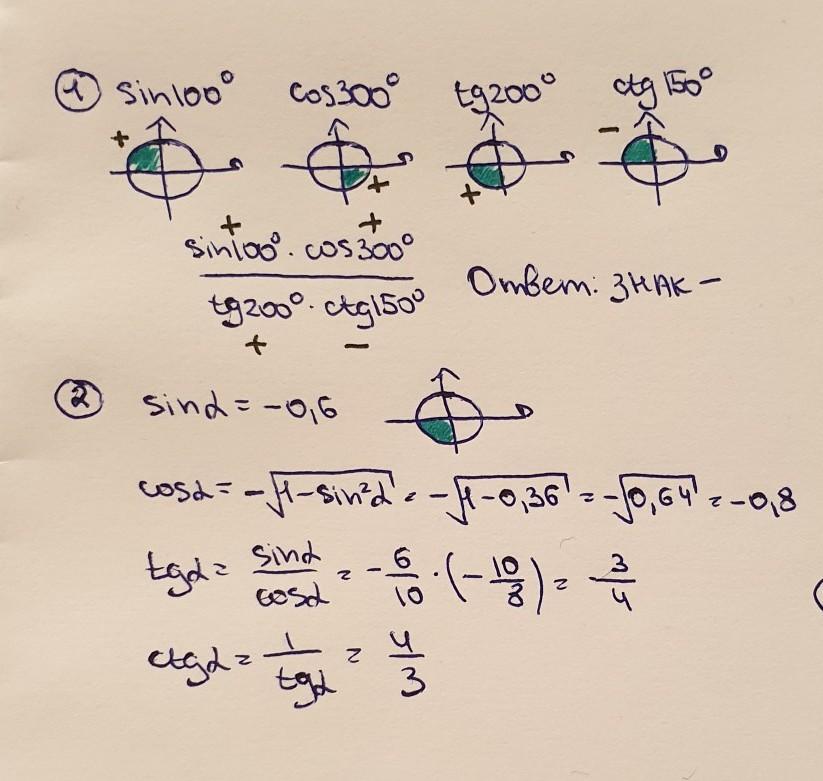 ① sin100° cos300° tg200° ctg150°
+ + + −
+ +
sin100° · cos300°
tg200° · ctg150° Ответ: ЗНАК −
+ −
② sinα = −0,6
cosα = −√(1−sin²α) = −√(1−0,36) = −√(0,64) = −0,8
tgα = sinα/cosα = −6/10 · (−10/8) = 3/4
ctgα = 1/tgα = 4/3